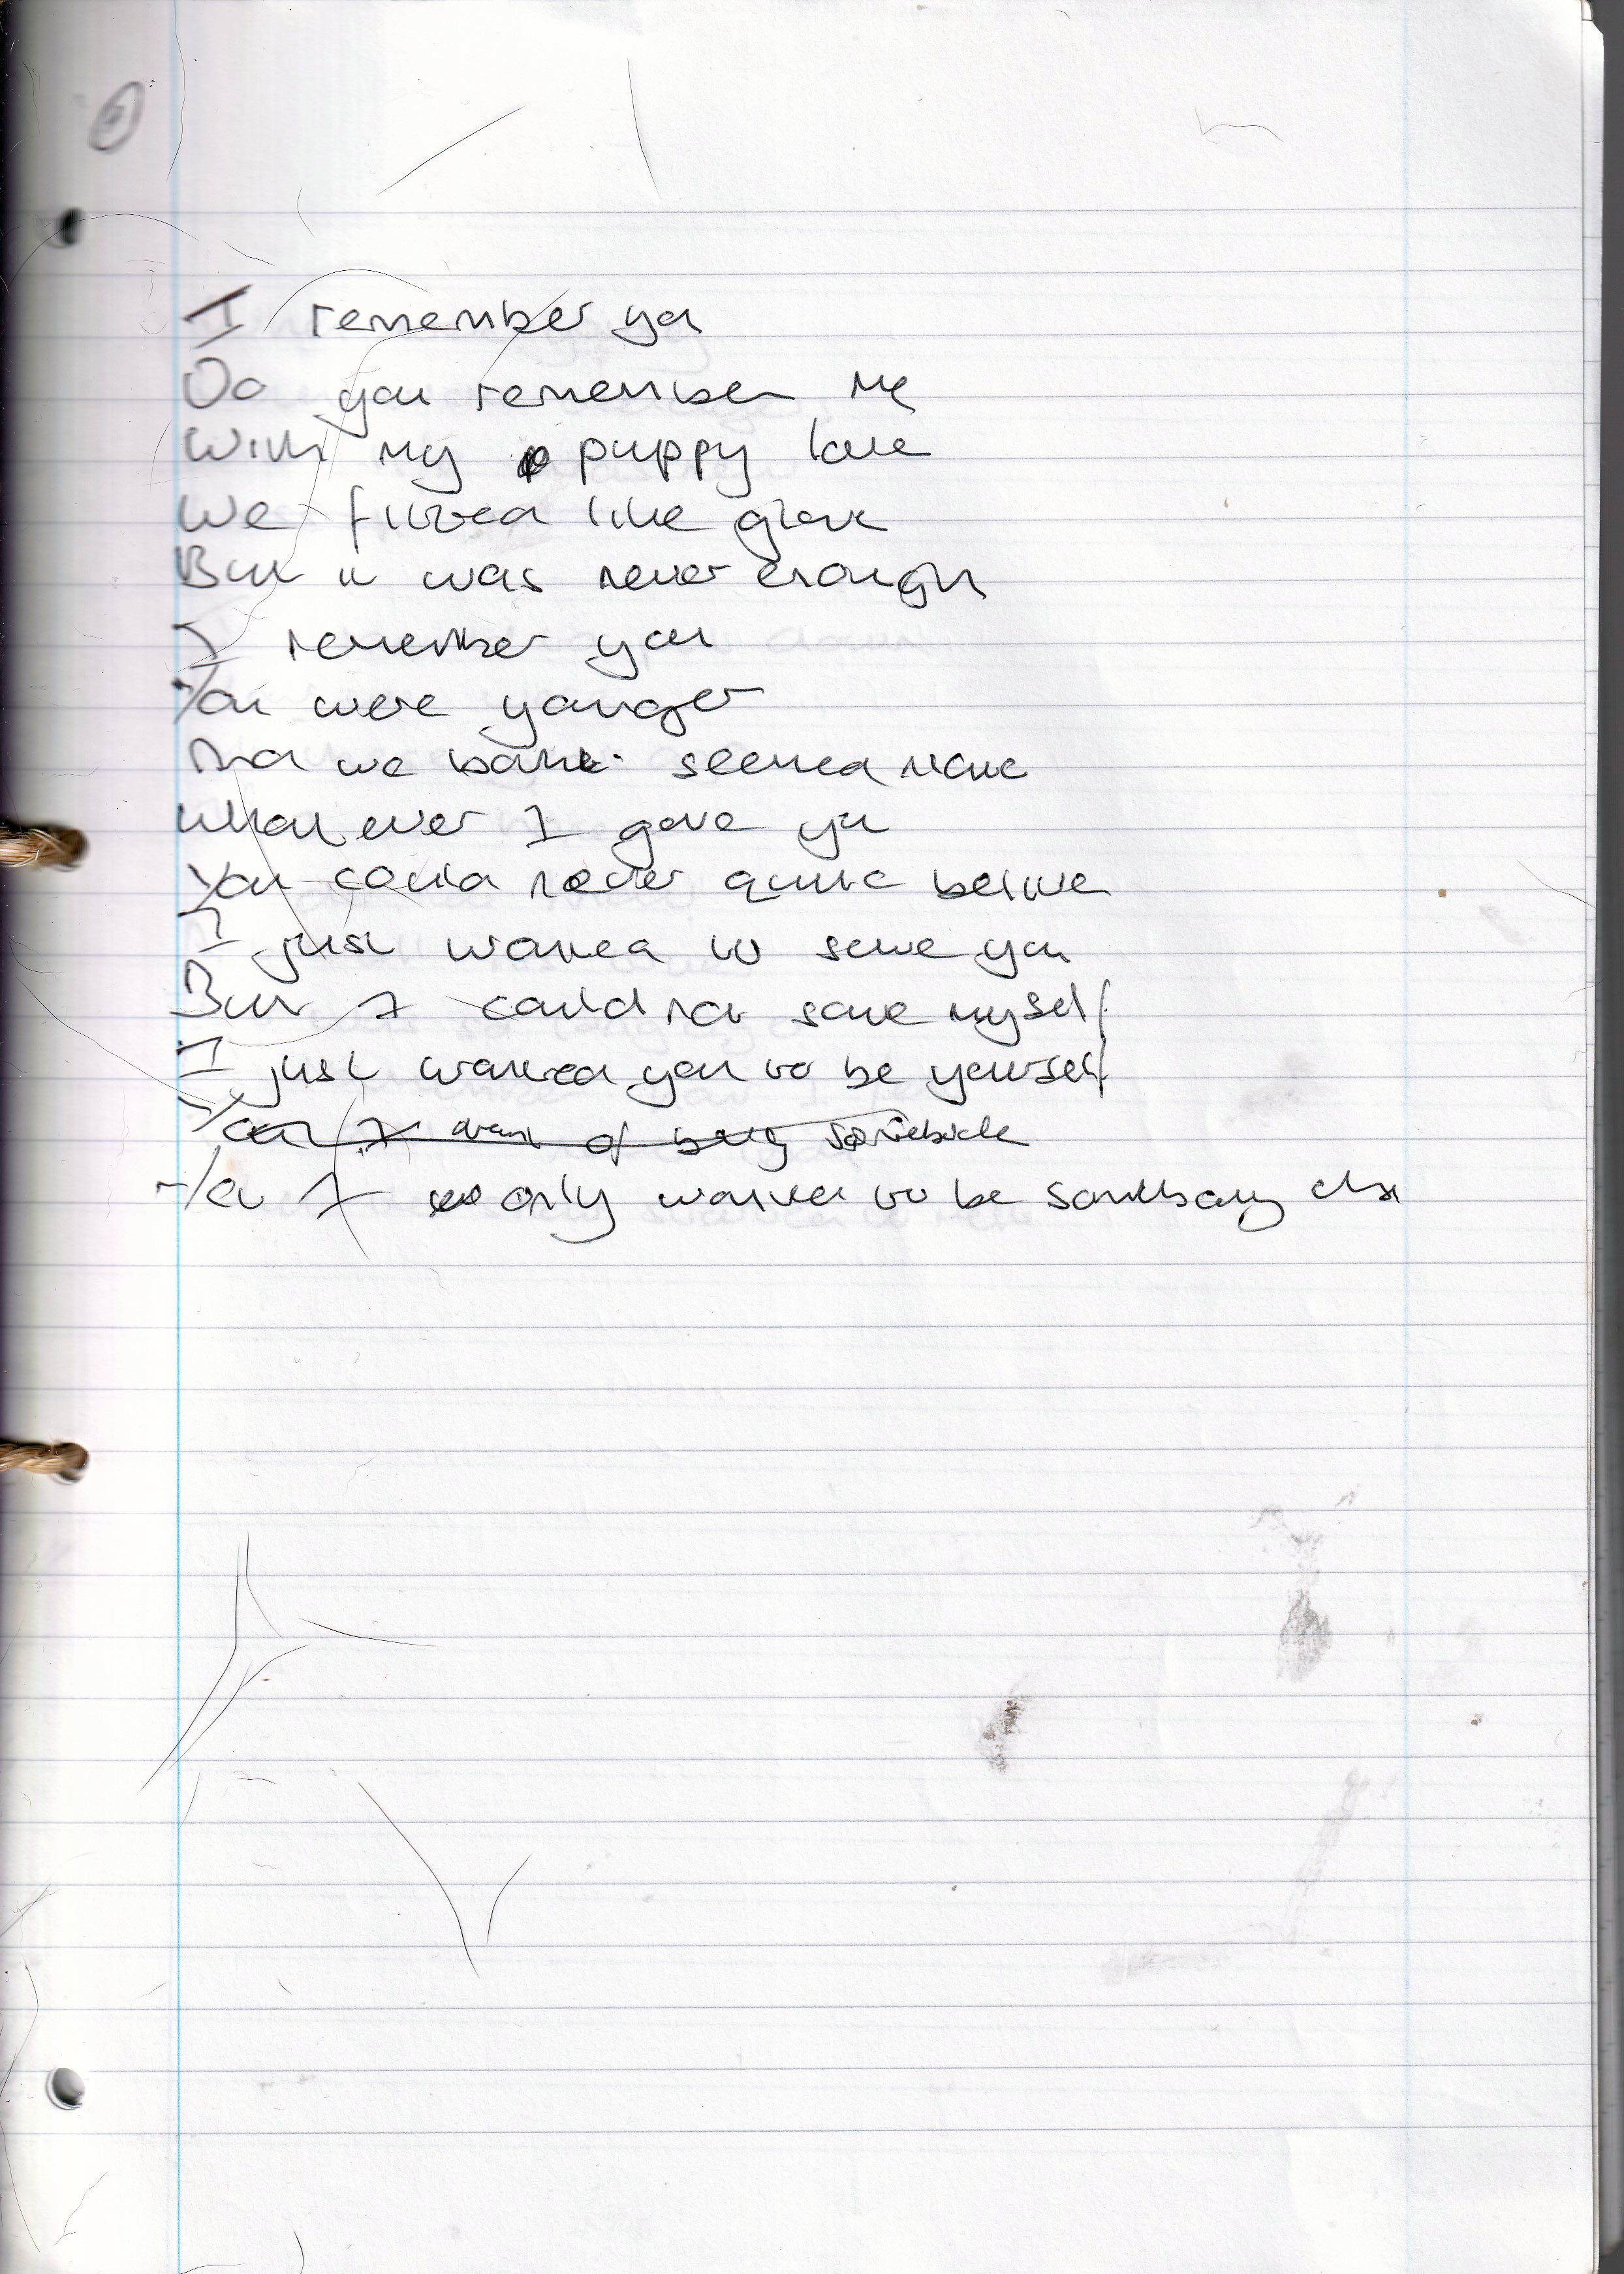 I remember you
Do you remember me
With my puppy love
We fitted like glove
But it was never enough
I remember you
You were younger
And we both seemed naive
What ever I gave you
You could never quite belive
I just wanted to save you
But I could not save myself
I just wanted you to be yourself
Yet I dream of being somebody
Yet I only wanted to be somebody else